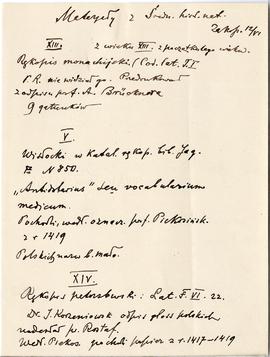 Materyały z Średn. hist. nat.
Zakop. 12/VI
XIII. z wieku XIII. z początkiem wieku
Rękopis monachijski (Cod. lat.
P. R. nie widział go. Przedrukował
z odpisu prof. A. Brücknera
9 gatunków
V.
Wisłocki w Katal. rękop. bibl. Jag.
N 850.
„Antidotarius" seu vocabularium
medicum.
Pochodzi, wedł. oznacz. prof. Piekosińsk.
z r 1419
Polskich nazw b. mało.
XIV.
Rękopis petersburski: Lat. F. VI. 22.
Dr. J. Korzeniowski odpis gloss polskich
nadesłał pr. Rostaf.
Wedł. Piekos. pochodzi papier z r. 1417–1419